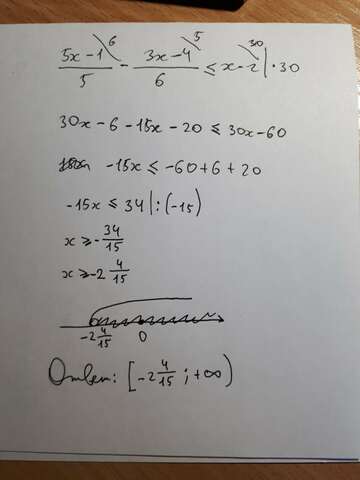 (5x-1)/5 ^6 - (3x-4)/6 ^5 ≤ x-2 ^30 | ·30
30x-6-15x-20 ≤ 30x-60
-15x ≤ -60+6+20
-15x ≤ 34 |:(-15)
x ≥ -34/15
x ≥ -2 4/15
-2 4/15 0
Ответ: [-2 4/15 ; +∞)